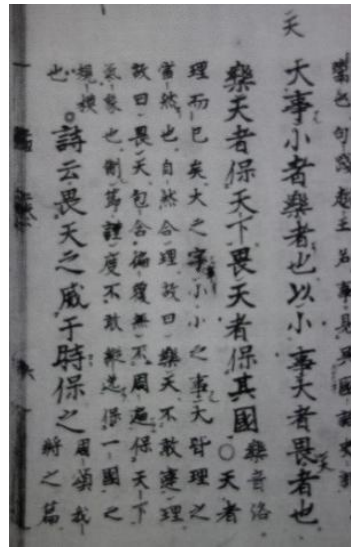 天
也句踐越王名事見國語史
大事小者樂者也以小事大者畏者也
天
樂天者保天下畏天者保其國○
樂音洛
天者
理而已矣大之字小小之事大皆理之
當然也自然合理故曰樂天不敢違理
故曰畏天包含徧覆無不周遍保天下
氣象也制節謹度不敢縱逸保一國之
規模
也
○詩云畏天之威于時保之
周頌我
將之篇